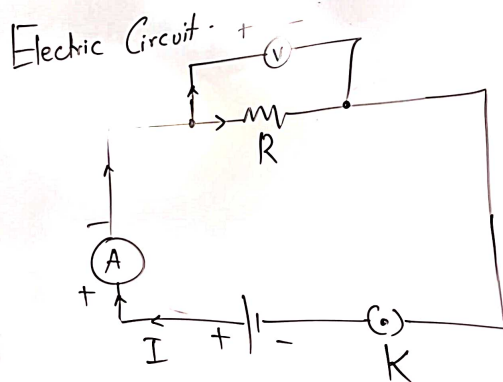 Electric Circuit.
+ -
V
R
-
A
+
I + - K